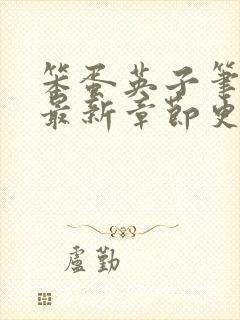 笨蛋英子筆
最新章節史
盧勤